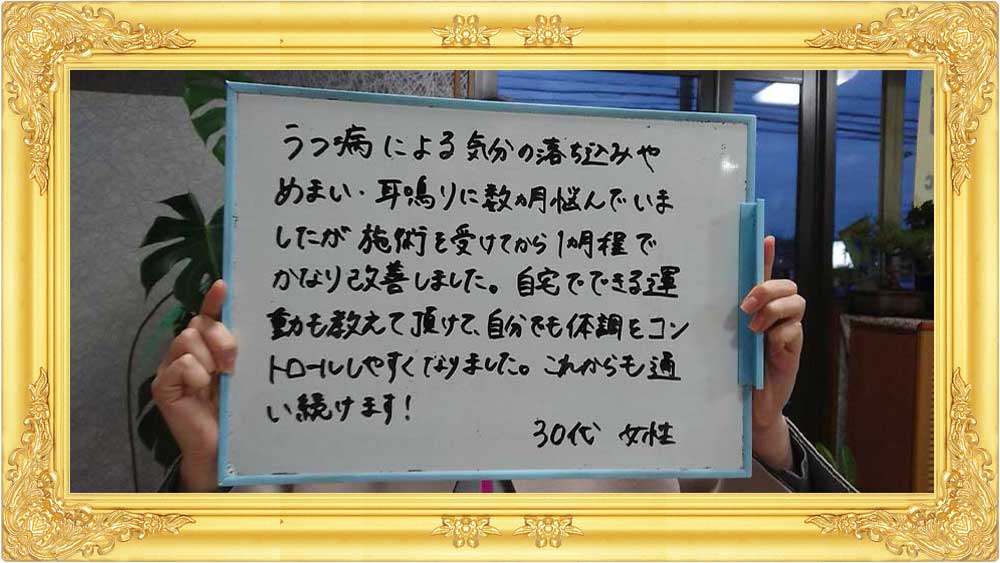 うつ病による気分の落ち込みや
めまい・耳鳴りに数ヵ月悩んでいま
したが施術を受けてから1ヵ月程で
かなり改善しました。自宅でできる運
動も教えて頂けて、自分でも体調をコン
トロールしやすくなりました。これからも通
い続けます！
30代 女性